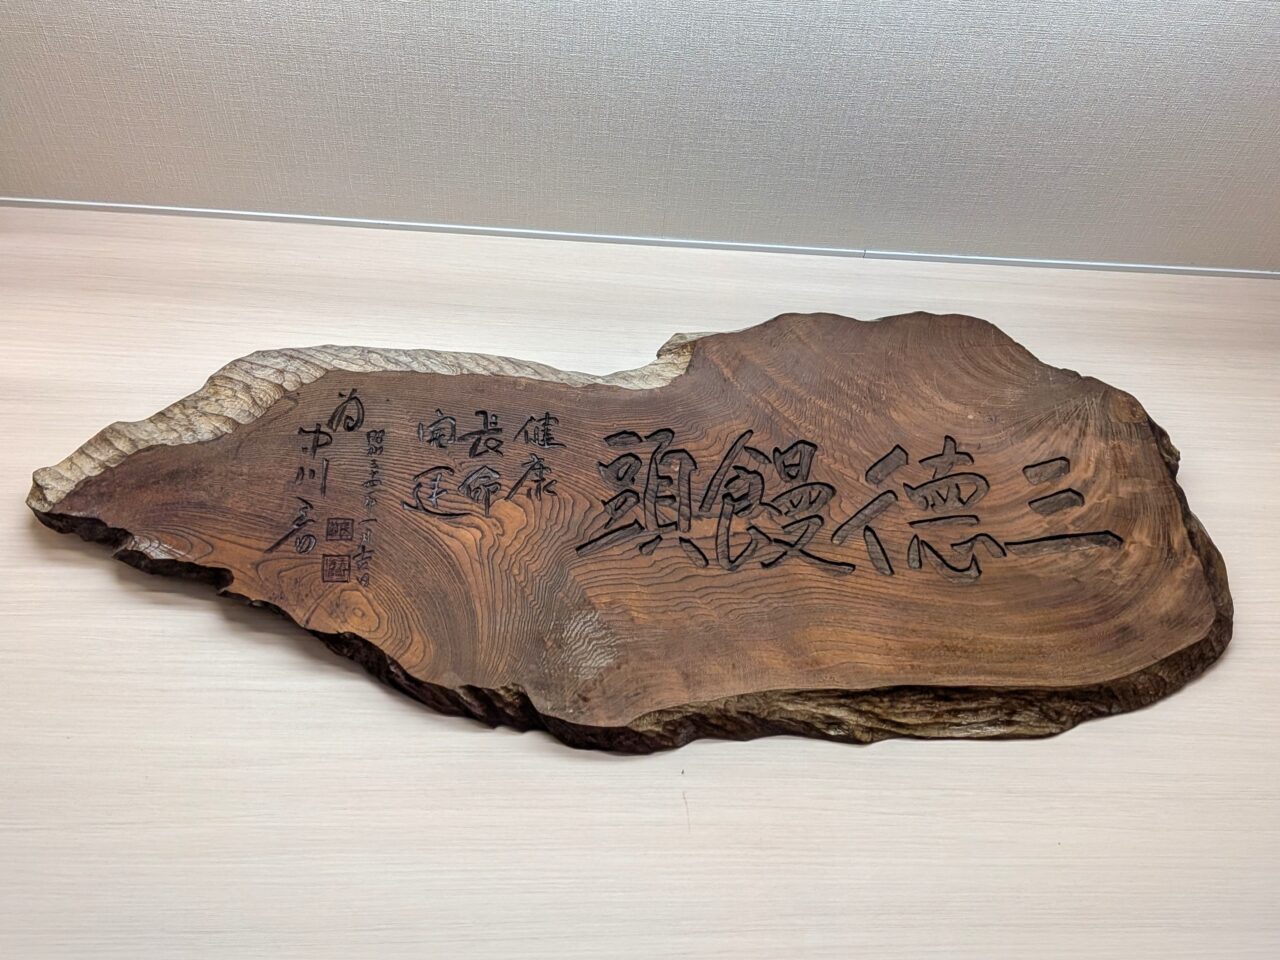 三德饅頭
健康
長命
開運
昭五十四年一月吉日
為
中川